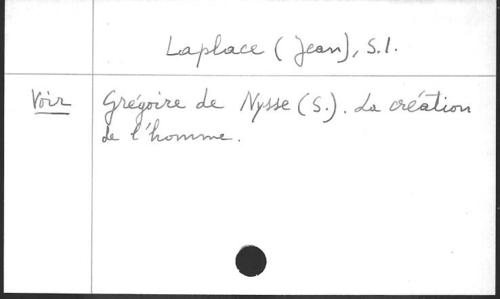 Laplace (Jean), S.I.
Voir Grégoire de Nysse (S.). La création
de l'homme.